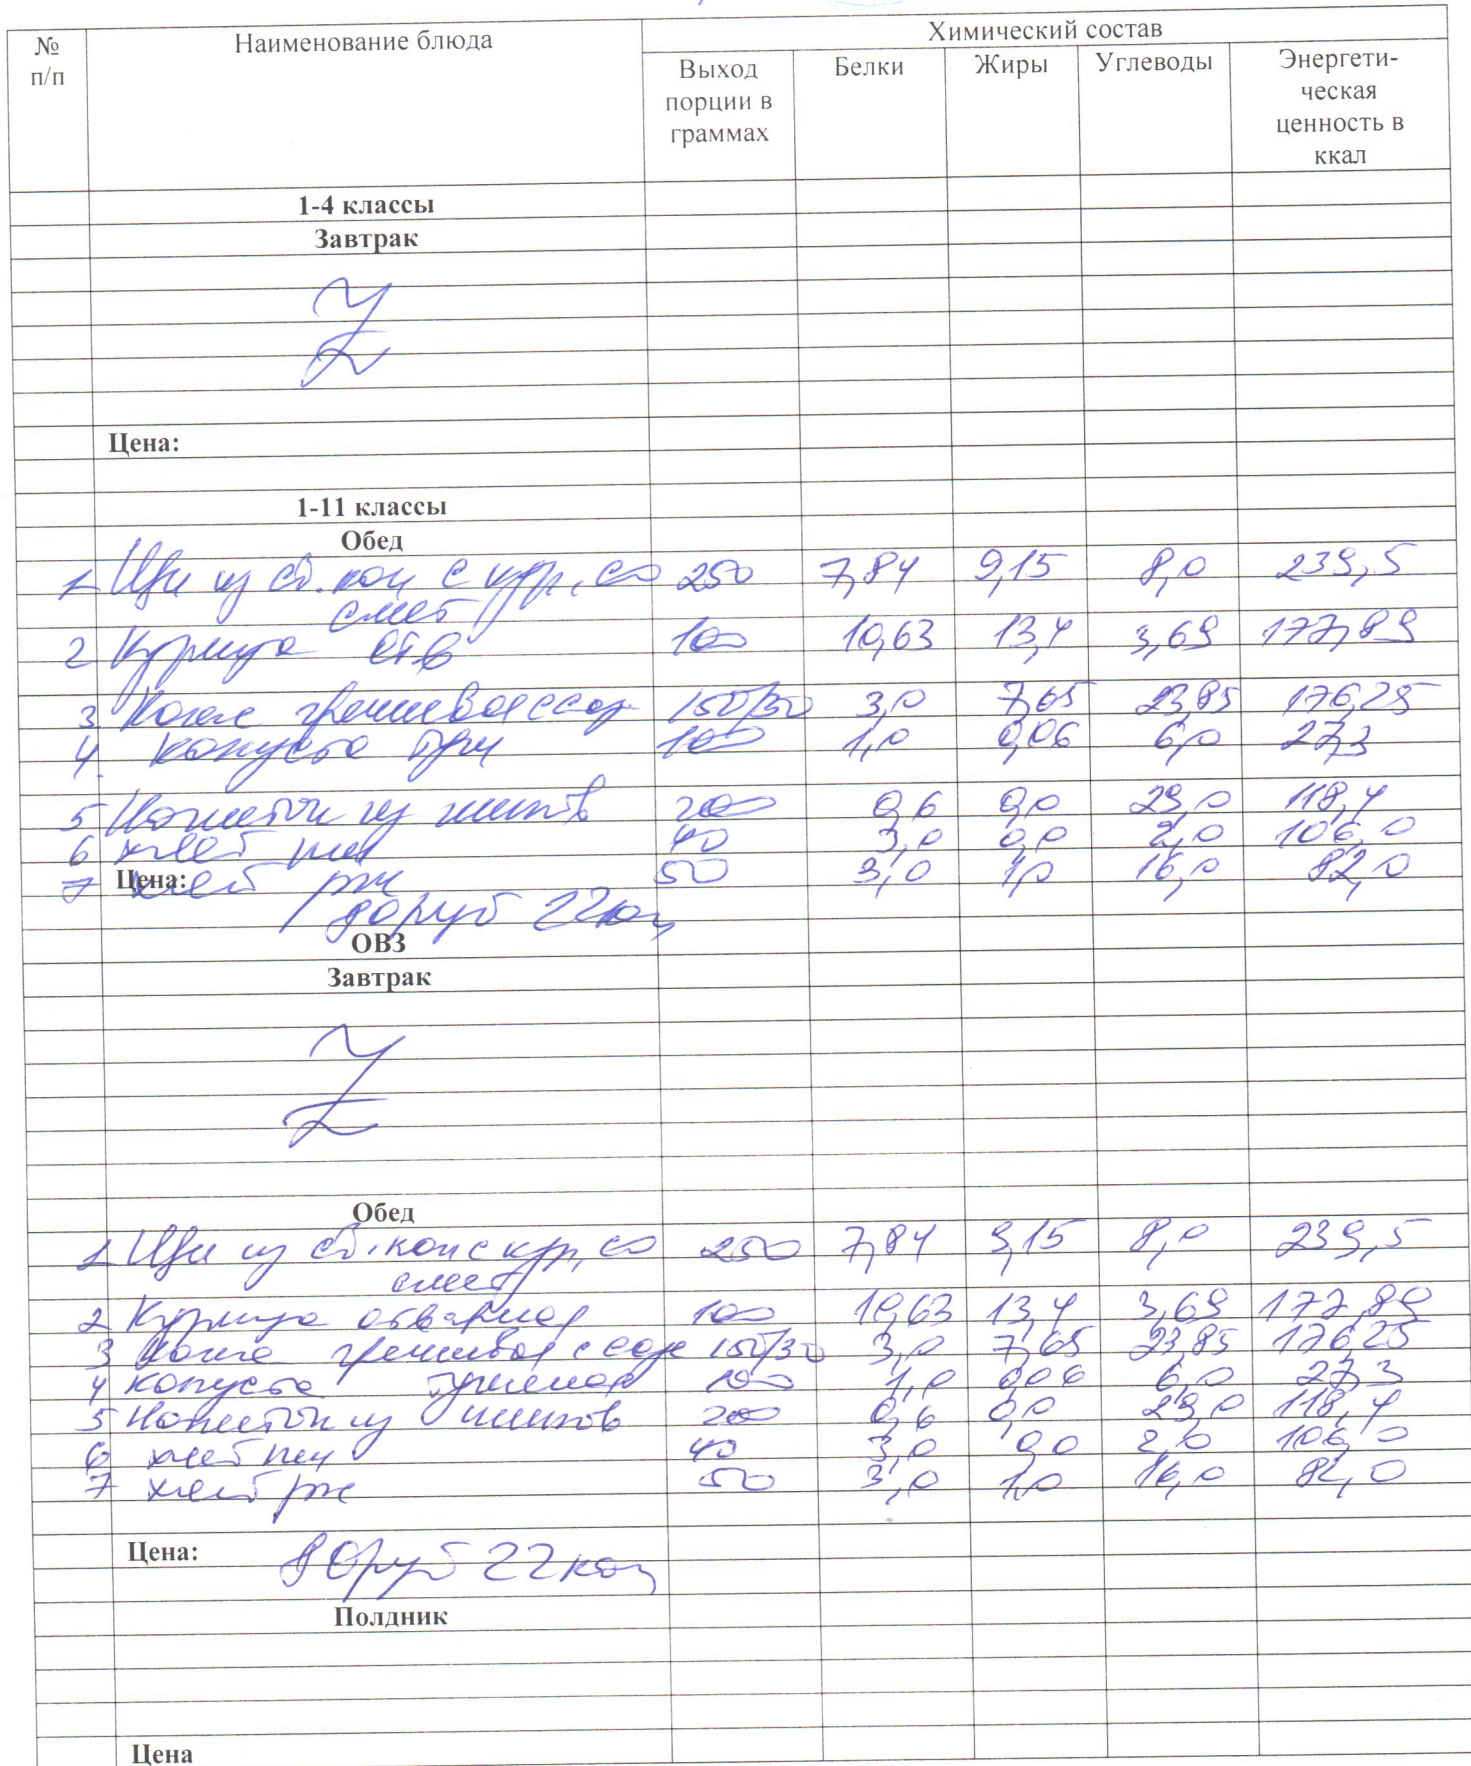 № п/п Наименование блюда Химический состав
Выход порции в граммах Белки Жиры Углеводы Энергети-ческая ценность в ккал
1-4 классы
Завтрак
Z
Цена:
1-11 классы
Обед
1 Щи из св. кап с кур, со 250 7,84 9,15 8,0 239,5
смет
2 Курица отв 100 10,63 13,4 3,69 177,89
3 Каша гречневая с сар 150/30 3,0 7,65 23,85 176,25
4 капуста туш 100 1,0 0,06 6,0 27,3
5 Напиток из 200 0,6 0,0 29,0 118,4
6 хлеб пш 40 3,0 0,0 2,0 106,0
7 Цена: хлеб рж 50 3,0 1,0 16,0 82,0
80руб 22коп
ОВЗ
Завтрак
Z
Обед
1 Щи из св. кап с кур, со 250 7,84 9,15 8,0 239,5
смет
2 Курица отварная 100 10,63 13,4 3,69 177,89
3 Каша гречневая с 150/30 3,0 7,65 23,85 176,25
4 капуста тушеная 100 1,0 0,06 6,0 27,3
5 Напиток из 200 0,6 0,0 29,0 118,4
6 хлеб пш 40 3,0 0,0 2,0 106,0
7 хлеб рж 50 3,0 1,0 16,0 82,0
Цена: 80руб 22коп
Полдник
Цена